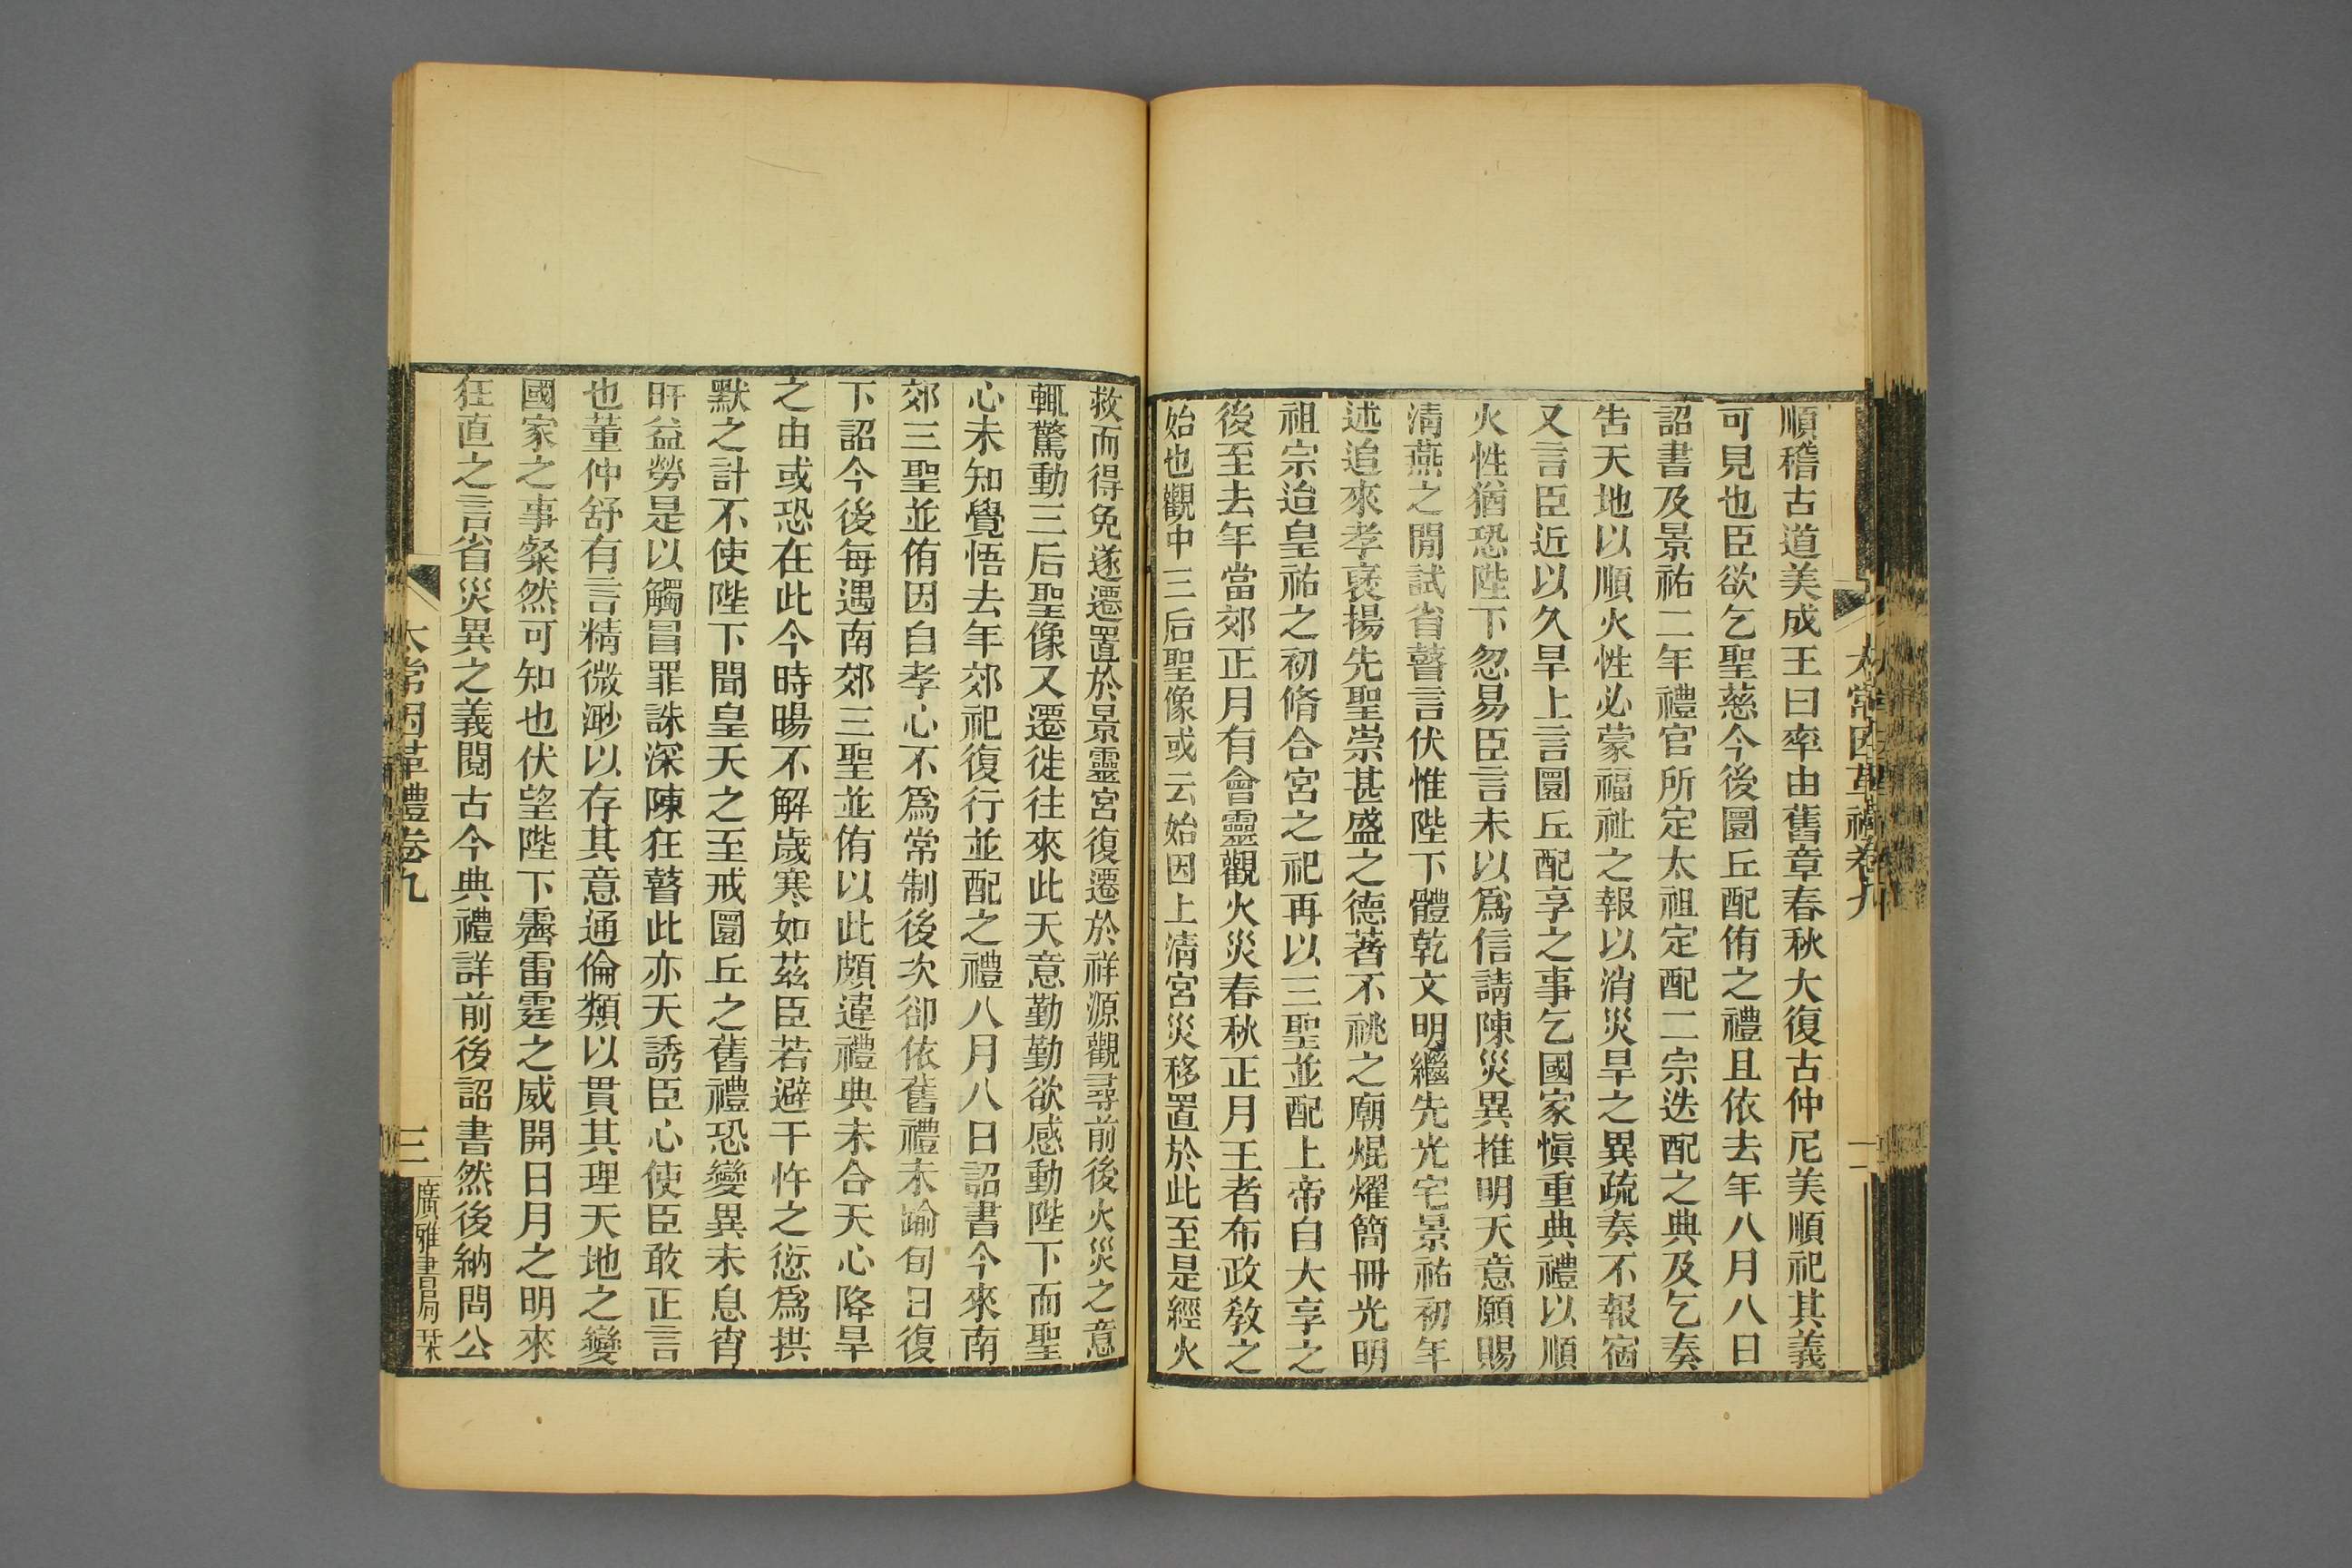 太常因革禮卷九
二
順稽古道美成王曰率由舊章春秋大復古仲尼美順祀其義
可見也臣欲乞聖慈今後圜丘配侑之禮且依去年八月八日
詔書及景祐二年禮官所定太祖定配二宗迭配之典及乞奏
告天地以順火性必蒙福祉之報以消災旱之異疏奏不報宿
又言臣近以久旱上言圜丘配享之事乞國家愼重典禮以順
火性猶恐陛下忽易臣言未以爲信請陳災異推明天意願賜
淸燕之閒試省瞽言伏惟陛下體乾文明繼先光宅景祐初年
述追來孝襃揚先聖崇甚盛之德蓍不祧之廟焜燿簡冊光明
祖宗迨皇祐之初脩合宮之祀再以三聖並配上帝自大享之
後至去年當郊正月有會靈觀火災春秋正月王者布政敎之
始也觀中三后聖像或云始因上淸宮災移置於此至是經火
救而得免遂遷置於景靈宮復遷於祥源觀尋前後火災之意
輒驚動三后聖像又遷徙往來此天意勤勤欲感動陛下而聖
心未知覺悟去年郊祀復行並配之禮八月八日詔書今來南
郊三聖並侑因自孝心不爲常制後次卻依舊禮未踰旬日復
下詔今後每遇南郊三聖並侑以此頗違禮典未合天心降旱
之由或恐在此今時暘不解歲寒如茲臣若避干忤之愆爲拱
默之計不使陛下聞皇天之至戒圜丘之舊禮恐變異未息宵
旰益勞是以觸冒罪誅深陳狂瞽此亦天誘臣心使臣敢正言
也董仲舒有言精微渺以存其意通倫類以貫其理天地之變
國家之事粲然可知也伏望陛下霽雷霆之威開日月之明來
狂直之言省災異之義閱古今典禮詳前後詔書然後納問公
太常因革禮卷九
三
廣雅書局栞